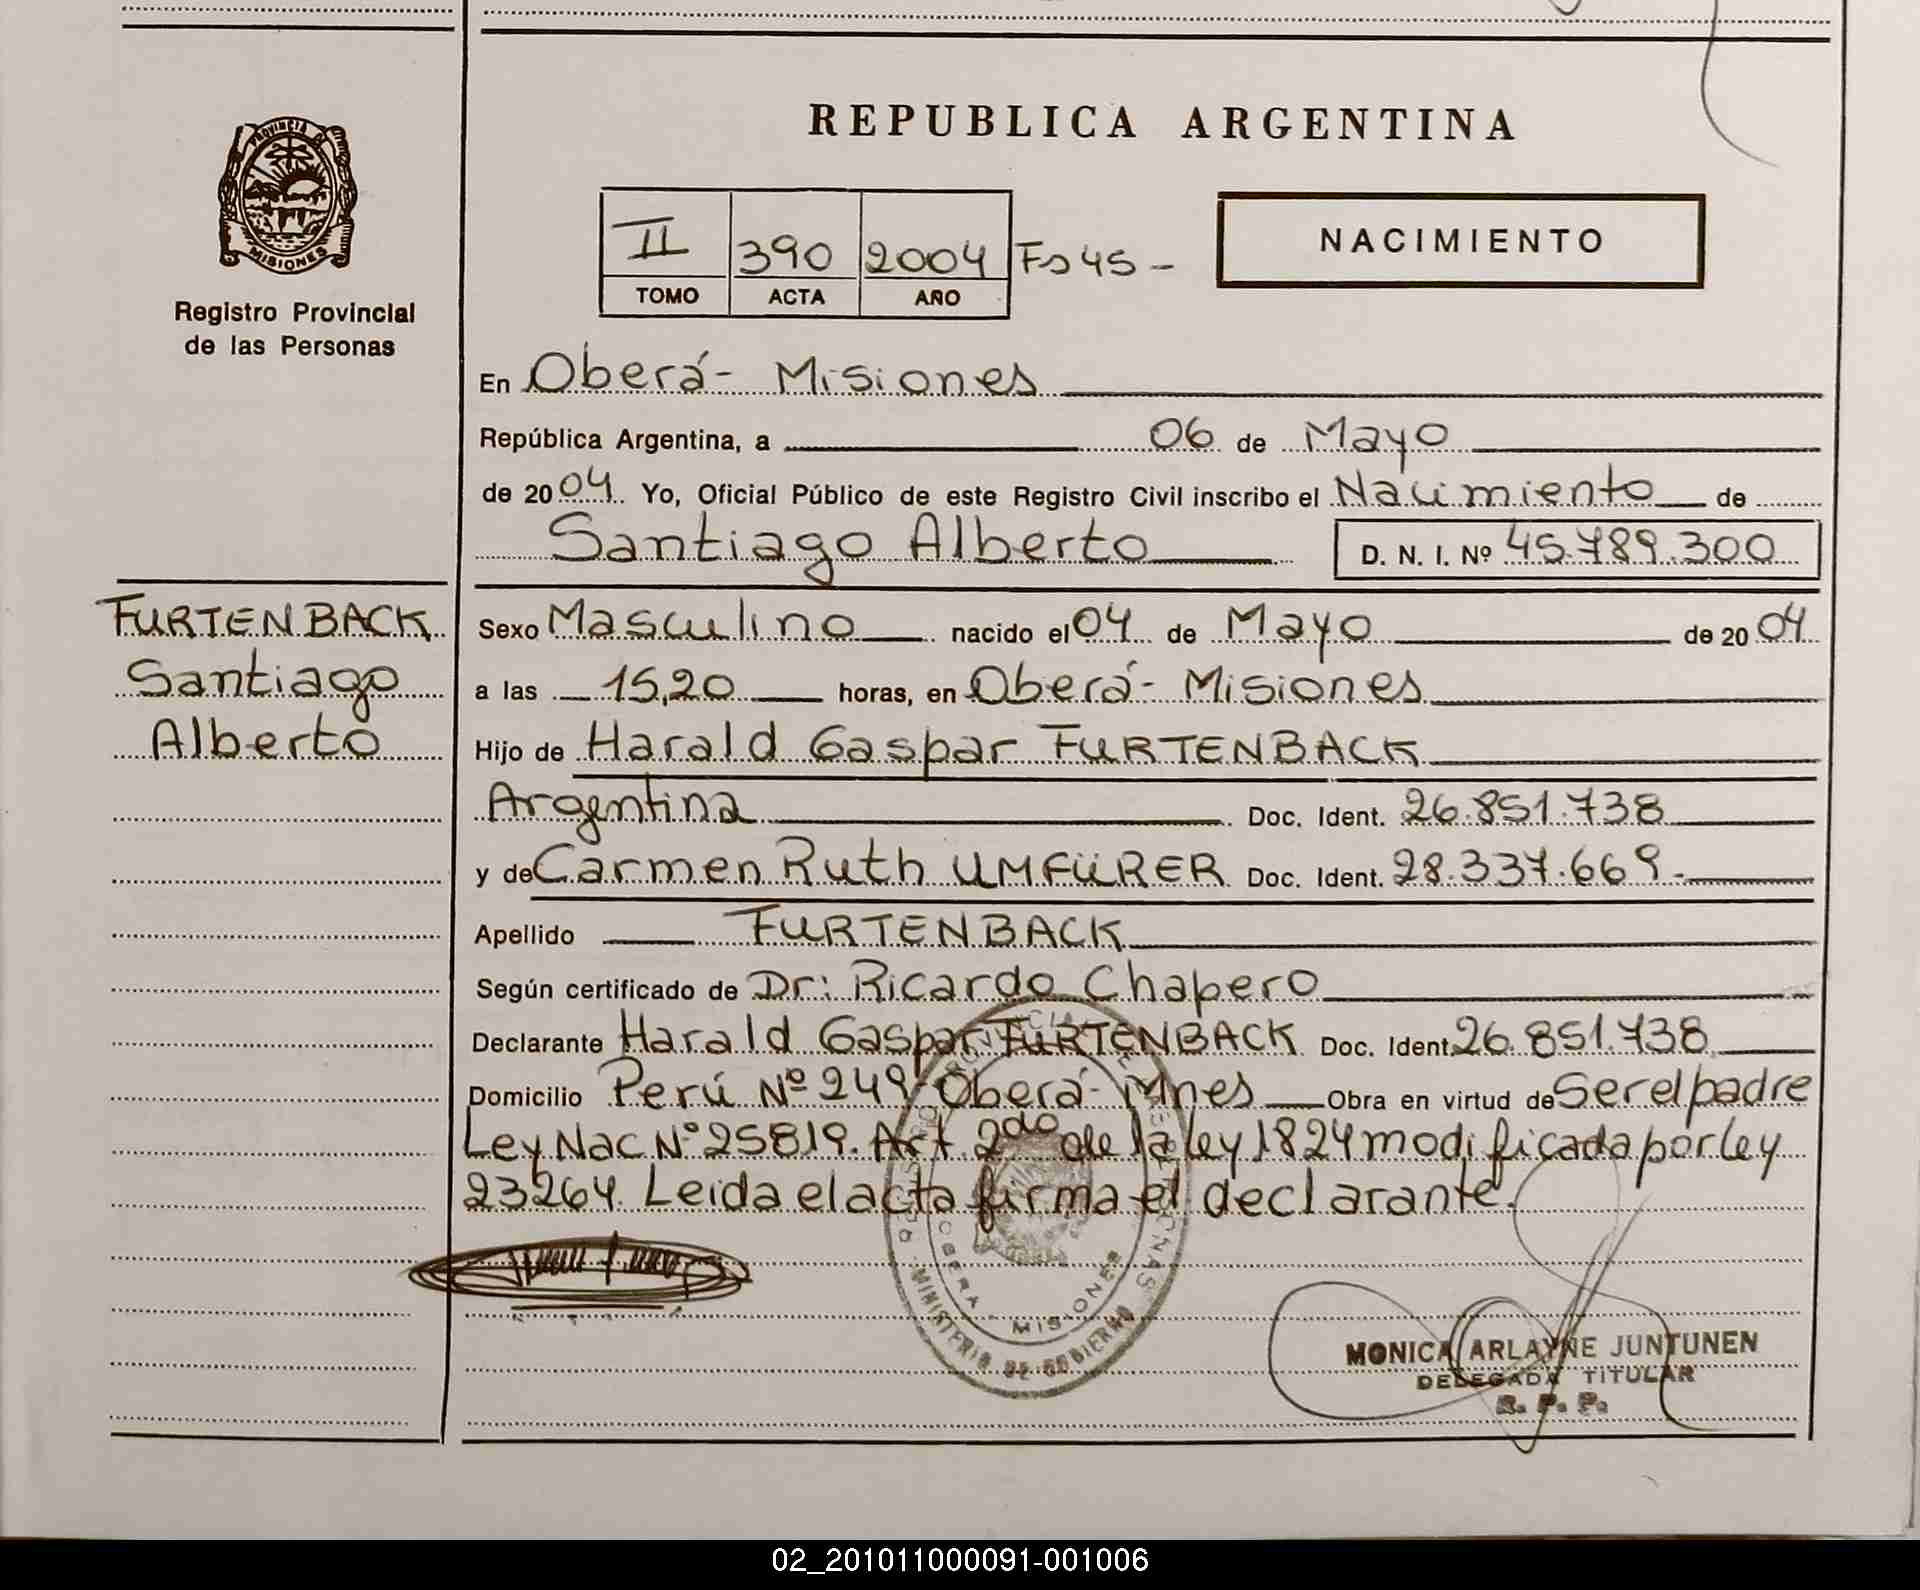 REPUBLICA ARGENTINA
PROVINCIA DE
MISIONES
Registro Provincial
de las Personas
II 390 2004 Fs 45 -
TOMO ACTA AÑO
NACIMIENTO
En Oberá - Misiones
República Argentina, a 06 de Mayo
de 2004 Yo, Oficial Público de este Registro Civil inscribo el Nacimiento de
Santiago Alberto D. N. I. Nº 45.789.300
FURTENBACK
Santiago
Alberto
Sexo Masculino nacido el 04 de Mayo de 2004
a las 15,20 horas, en Oberá - Misiones
Hijo de Harald Gaspar FURTENBACK
Argentina Doc. Ident. 26.851.738
y de Carmen Ruth UMFÜRER Doc. Ident. 28.337.669.-
Apellido FURTENBACK
Según certificado de Dr: Ricardo Chapero
Declarante Harald Gaspar FURTENBACK Doc. Ident. 26.851.738
Domicilio Perú Nº 249 Oberá - Mnes Obra en virtud de Ser el padre
Ley Nac Nº 25819. Art. 2do de la ley 1824 modificada por ley
23264. Leida el acta firma el declarante.
OBERA - MISIONES
MINISTERIO DE GOBIERNO
MONICA ARLAYNE JUNTUNEN
DELEGADA TITULAR
R. P. P.
02_201011000091-001006